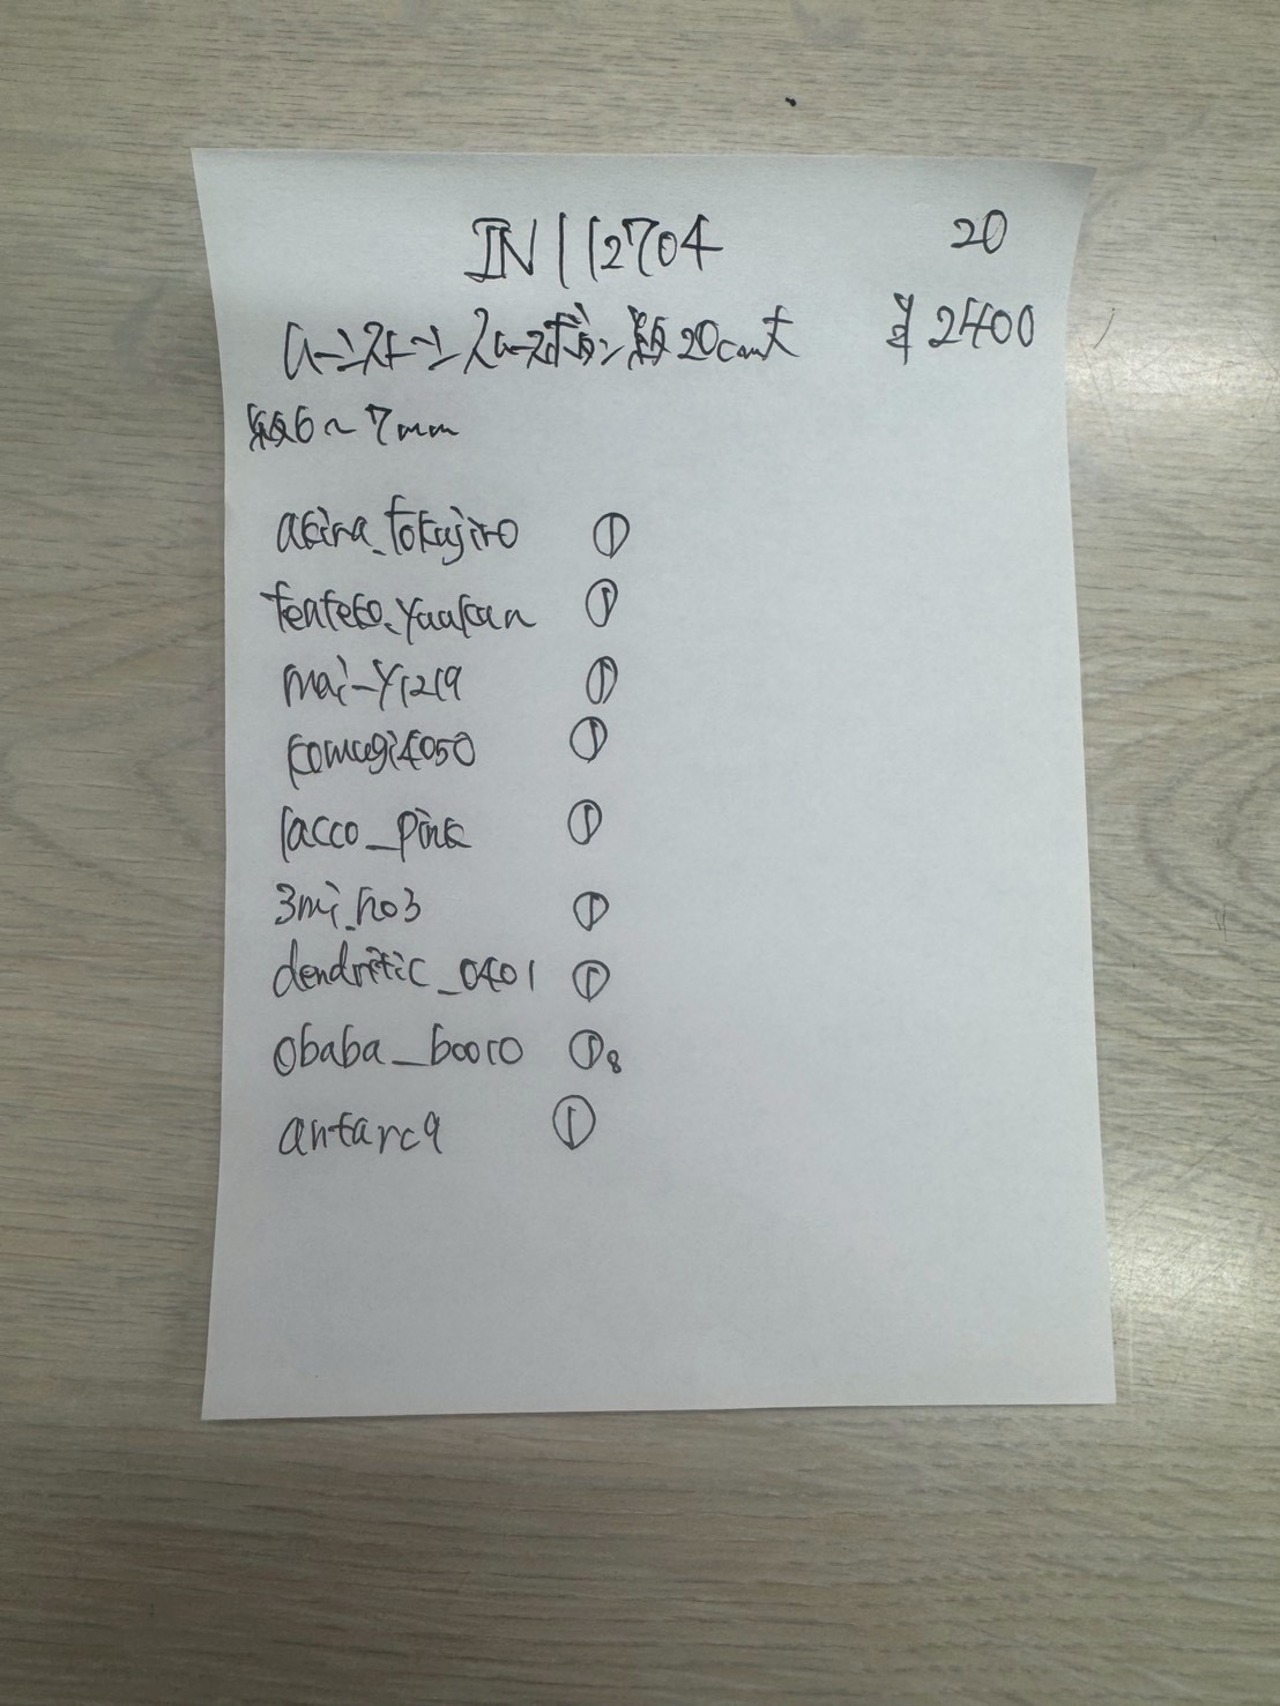 IN112704 20
ムーンストーン スムースボタン 約20cm大 ¥2400
約6~7mm
akira_tokujiro ①
tenteko.yaakan ①
mai-y1219 ①
komugi4050 ①
lacco_pink ①
3mi_ho3 ①
dendritic_0401 ①
obaba_booro ①8
antarc9 ①